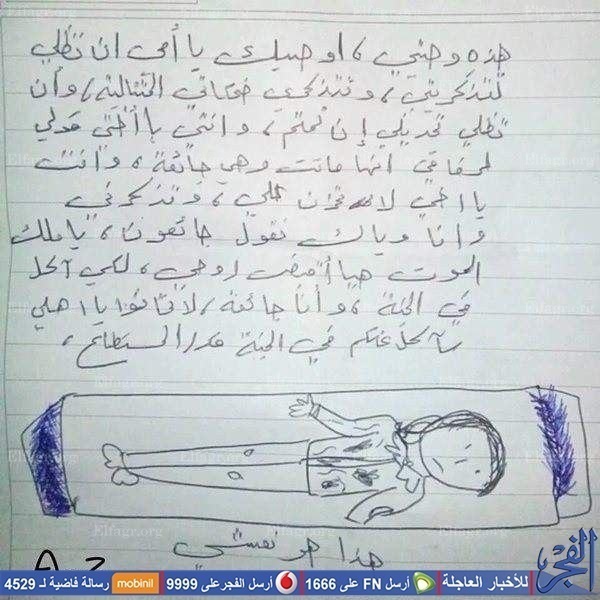 هذه وصيتي، اوصيك يا أمي ان تظلي
تتذكريني، وتتذكري ضحكاتي المتتالية، وأن
تظلي تحديلي إن نمتم، وانتي يا أختي قولي
لرفاقي انها ماتت وهي جائعة، وانت
يا اخي لا تحزن علي، وتذكرني
وانا وياك نقول جائعون، يا ملك
الموت هيا أقبض روحي، لكي آكل
في الجنة، وأنا جائعة، لا تخافوا يا اهلي
سآكل عنكم في الجنة قدر المستطاع،
هذا هو نعشي
Elfagr.org
الفجر
للأخبار العاجلة أرسل FN على 1666 أرسل الفجر على 9999 mobinil رسالة فاضية لـ 4529